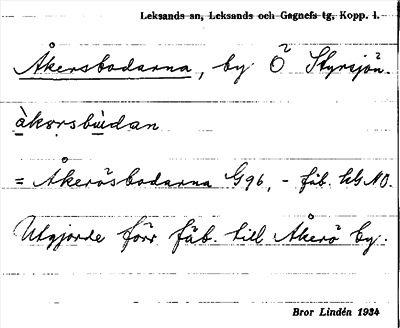 Leksands sn, Leksands och Gagnefs tg, Kopp. l.
Åkersbodarna, by Ö Styrsjön.
àkərsbùdan
= Åkerösbodarna G96, - fäb. kls NO.
Utgjorde förr fäb. till Åkerö by.
Bror Lindén 1934